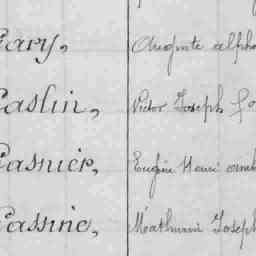 Cary, Auguste alpho
Caslin, Victor Joseph
Casnier, Eugène Henri
Cassine, Joseph